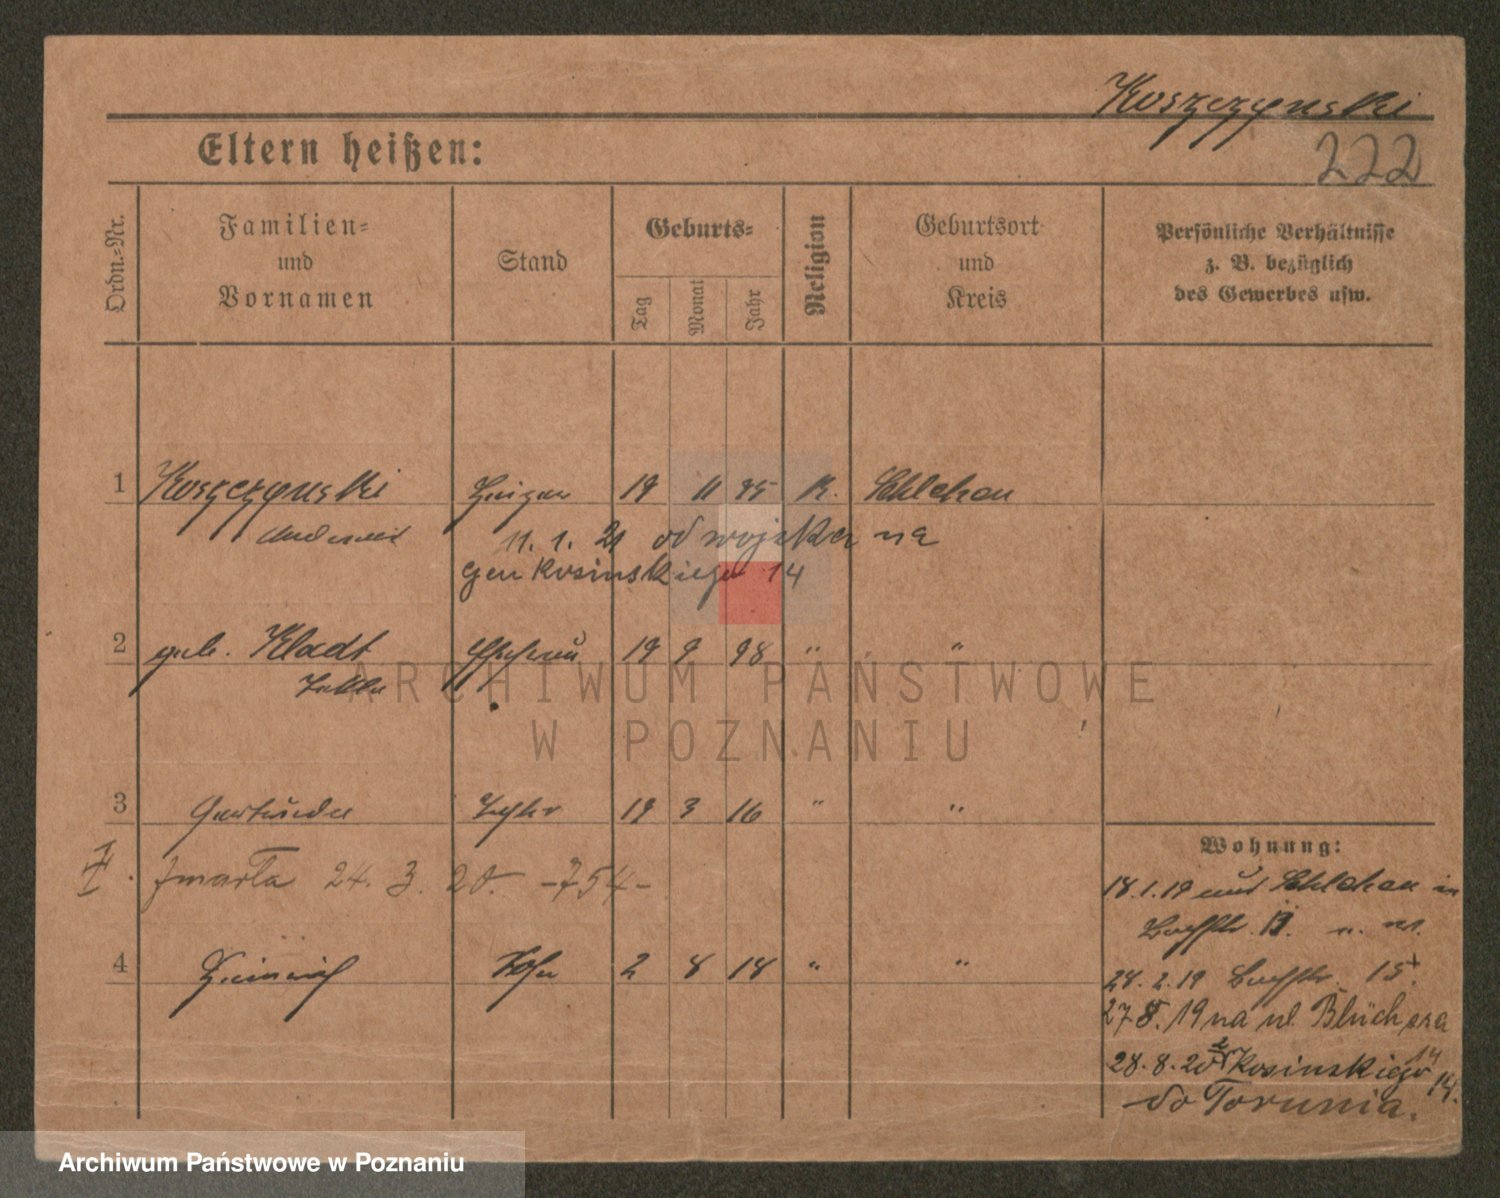 Koszczynski
222
Eltern heißen:
Ordn.-Nr.
Familien-
und
Vornamen
Stand
Geburts-
Tag
Monat
Jahr
Religion
Geburtsort
und
Kreis
Persönliche Verhältnisse
z. B. bezüglich
des Gewerbes usw.
1 Koszczynski 19 11 95 K. Schlehen
11. 1. 21 od wojska na
Gen Kosinskiego 14
2 geb. Kladt Ehefrau 19 9 98 " "
3 Gertrude Tochter 19 3 16 " "
zmarła 24. 3. 20. -754-
4 Heinrich Sohn 2 8 18 " "
Wohnung:
18.1.19 aus Schlehen in
28.2.19 15
27.8.19 na ul. Blüchera
14
28.8.20 Kosinskiego 14.
do Torunia.
ARCHIWUM PAŃSTWOWE
W POZNANIU
Archiwum Państwowe w Poznaniu